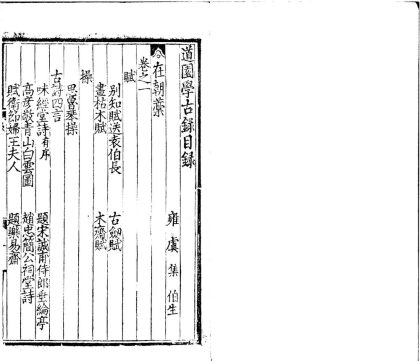 道園學古錄目錄
雍虞集伯生
在朝藁
卷之一
賦
别知賦送袁伯長 古劒賦
畫枯木賦 木齋賦
操
思魯琴操
古詩四言
味經堂詩有序 題宋誠甫侍郎垂綸亭
高彦敬青山白雲圖 趙忠簡公祠堂詩
賦衛節婦王夫人 題樂易齋